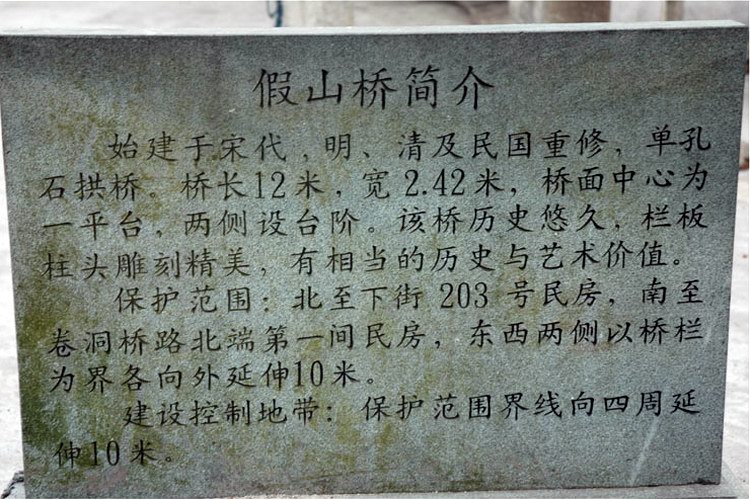 假山桥简介
始建于宋代,明、清及民国重修,单孔
石拱桥。桥长12米,宽2.42米,桥面中心为
一平台,两侧设台阶。该桥历史悠久,栏板
柱头雕刻精美,有相当的历史与艺术价值。
保护范围:北至下街203号民房,南至
卷洞桥路北端第一间民房,东西两侧以桥栏
为界各向外延伸10米。
建设控制地带:保护范围界线向四周延
伸10米。